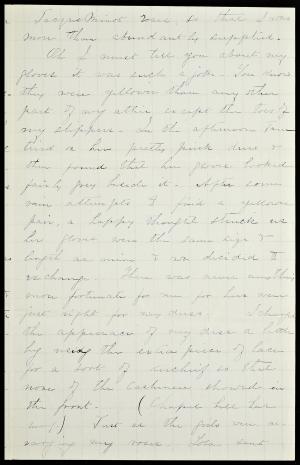 Jacque Minot roses, so that I was
more than abundantly supplied.
Oh I must tell you about my
gloves it was such a joke. You know
they were yellower than any other
part of my attire except the toes of
my slippers. In the afternoon
tried on her pretty pink dress &
then found that her gloves looked
fairly grey beside it. After some
vain attempts to find a yellower
pair, a happy thought struck us
her gloves were the same size &
length as mine & we decided to
exchange. There was never anything
more fortunate for me for hers were
just right for my dress. I changed
the appearance of my dress a little
by using the extra piece of lace
for a sort of that
none of the cashmere showed in
the front. (Chapel bell has
rung) Just as the girls were
arranging my roses. sent